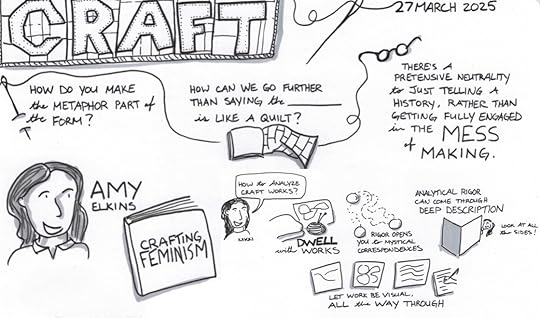 CRAFT
27 MARCH 2025
HOW DO YOU MAKE
the METAPHOR PART of
the FORM?
HOW CAN WE GO FURTHER
THAN SAYING the ________
is LIKE A QUILT?
THERE'S A
PRETENSIVE NEUTRALITY
to JUST TELLING A
HISTORY, RATHER THAN
GETTING FULLY ENGAGED
in THE MESS
of MAKING.
AMY
ELKINS
CRAFTING
FEMINISM
HOW to ANALYZE
CRAFT WORKS?
DWELL
with WORKS
RIGOR OPENS
YOU to MYSTICAL
CORRESPONDENCES
ANALYTICAL RIGOR
CAN COME THROUGH
DEEP DESCRIPTION
LOOK AT ALL
the SIDES!
LET WORK BE VISUAL,
ALL the WAY THROUGH